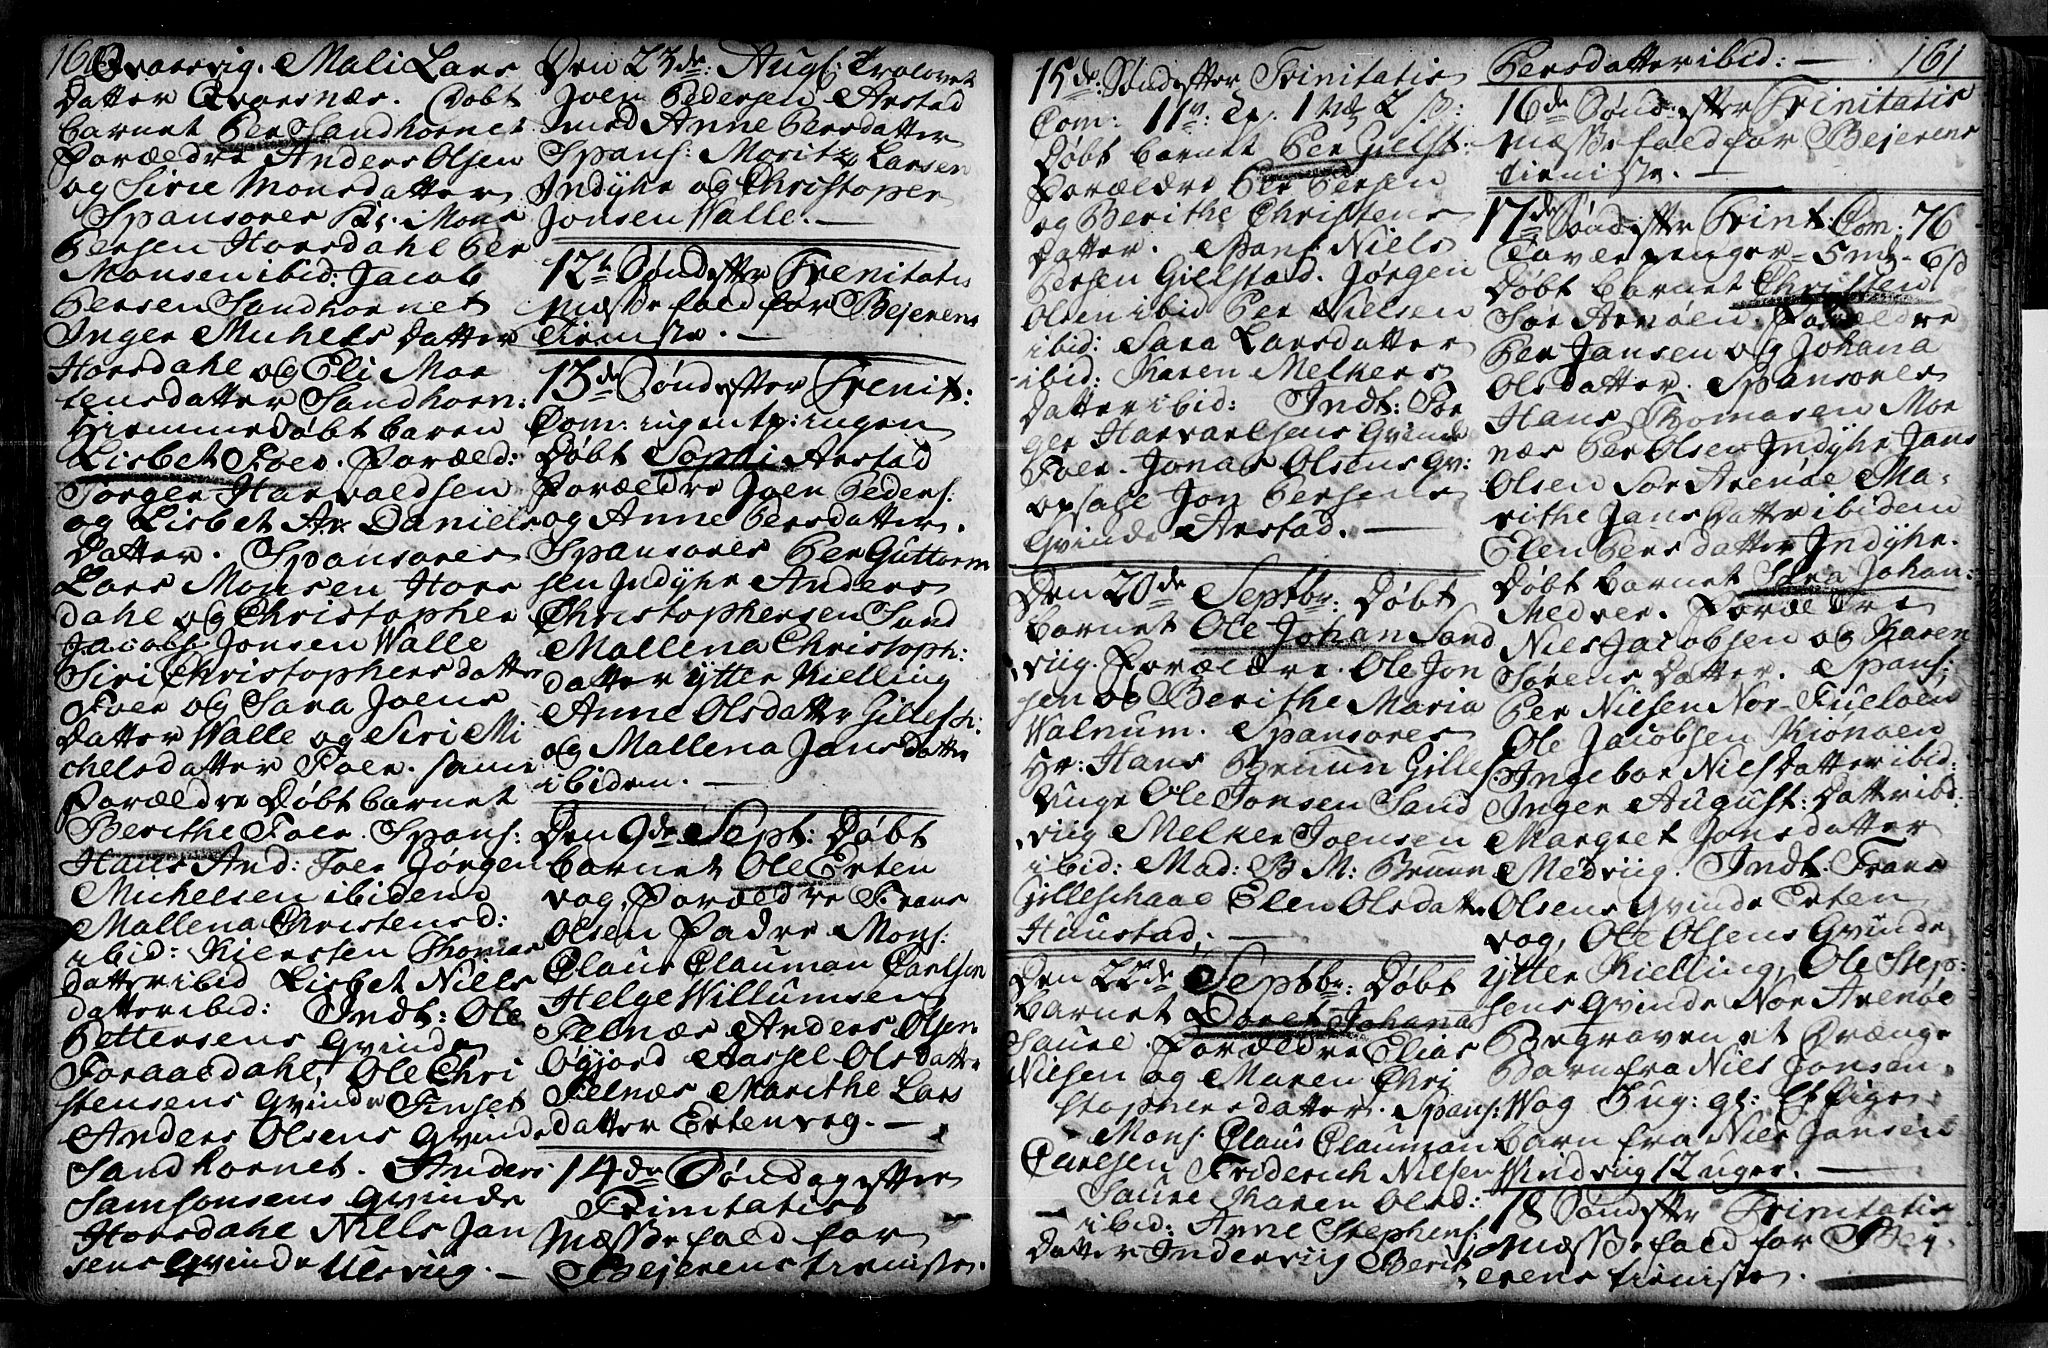 160
Qvarsvig. Mali Lars
Datter Qvarsnæs. Døbt
barnet Per Sandhornet
Forældre Anders Olsen
og Sirie Monsdatter
Spansores Mons
Persen Horsdahl Per
Monsen ibid: Jacob
Persen Sandhornet
Inger Michels Datter
Horsdahl og Eli Mor
tensdatter Sandhorn:
Hiemmedøbt baren
Lisbet Foer. Foræld:
Jørgen Harvaldsen
og Lisbet Daniels
Datter. Spansores
Lars Monsen Hors
dahl og Christopher
Jonsen Walle
Siri Christophersdatter
Foer og Sara Joens
Datter Walle og Siri Mi
chelsdatter Foer. samme
Forældre Døbt barnet
Berithe Foer. Spans:
Hans And: Foer Jørgen
Michelsen ibidem
Mallena Christensd:
ibid: Kiersten Thomas
datter ibid Lisbet Niels
datter ibid: Indt: Ole
Pettersens Qvinde
Foraasdahl, Ole Chri
stensens Qvinde Finset
Anders Olsens Qvinde
Sandhornet. Anders
Samsonsens Qvinde
Horsdahl Niels Jan
sens Qvinde Ulsviig. —
Den 23de: Aug: Trolovet
Joen Pedersen Arstad
med Anne Persdatter
Spans: Moritz Larsen
Indyhr og Christopher
Jonsen Walle. —
12te Sønd efter Trenitatis
Mæsse fald for Bejerens
tieniste. —
13de Sønd efter Trenit:
Com: ingen tp: ingen
Døbt Sophi Arstad
Forældre Joen Peders:
og Anne Persdatter.
Spansores Per Guttorm
sen Indyhr Anders
Christophersen Sand
Mallena Christoph:
datter ytter Kielling
Anne Olsdatter Gillesch:
og Mallena Jansdatter
ibidem. —
Den 9de Sept: Døbt
barnet Ole Erten
vog, Forældre Frans
Olsen Padre Mons:
Claus Clauman Carlsen
Helge Willumsen
Felnæs Anders Olsen
Ogjord Aassel Olsdatter
Felnæs Marithe Lars
datter Ertenvog. —
14de Søndag efter
Trinitatis
Mæsse fald for
Bejerens tieniste.
15de Sønd efter Trinitatis
Com: 11 tp. 1 mk 2 s:
Døbt barnet Per Gillst:
Forældre Per Persen
og Berithe Christens
datter. Spans: Niels
Persen Gielstad. Jørgen
Olsen ibid Per Nielsen
ibid: Sara Larsdatter
ibid: Karen Melkers
datter ibid: Indt: Jør
gen Harvarlsens Qvinde
Foer. Jonas Olsens Qv:
opsall Jon Persens
Qvinde Arstad. —
Den 20de Septbr: Døbt
barnet Ole Johan Sand
viig. Forældre. Ole Jon
sen og Berithe Maria
Walnum. Spansores
Hr: Hans Bruun Gilles
Unge Ole Jonsen Sand
viig Melker Joensen
ibid: Mad: B M: Bruun
Gilleschaal Elen Olsdatter
Huustad; —
Den 22de Septbr: Døbt
barnet Doret Johana
Saure. Forældre Elias
Nielsen og Maren Chri
stophersdatter. Spans:
Mons: Claus Clauman
Carlsen Friderich Nielsen
Saure Karen Olsd:
ibid: Anne Stephens:
datter Inderviig Berit
Persdatter ibid: —
161
16de Sønd: efter Trinitatis
Mæsse fald for Bejerens
tieniste. —
17de Sønd efter Trinit: Com: 76
Tavle penger 5 mk - 6 s
Døbt barnet Christen
Sør Arnøen. Forældre
Per Jansen og Johana
Olsdatter. Spansores
Hans Thomasen Mor
næs Per Olsen Indyhr Jans
Olsen Sør Arnøe Ma-
rithe Jans datter ibidem
Elen Persdatter Indyhr.
Døbt barnet Sara Johan:
Medvei. Forældre
Niels Jacobsen og Karen
Sørens datter. Spans:
Per Nielsen Nor-Fugløen
Ole Jacobsen Kiønøen
Ingebor Niels Datter ibid:
Inger August: Datter ibd:
Margret Jonsdatter
Medviig. Indt: Frans
Olsens Qvinde Erten
vog, Ole Olsens Qvinde
ytter Kielling, Ole Step:
sens Qvinde Nor Arnøe
Begraven et Drænge
Barn fra Niels Jonsen
Wog 3 ug: gl: Et Pige
barn fra Niels Jansen
Windviig 12 uger. —
18 Sønd efter Trinitatis
Mæsse fald for Bej
erens tieniste.